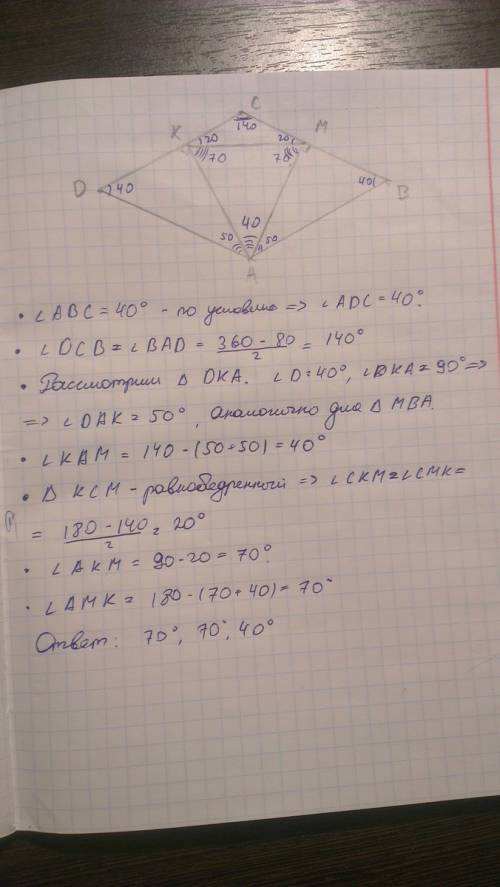 C
140
K
M
20
20
70
70
D
40
40
B
40
50
50
A
• ∠ABC = 40° - по условию => ∠ADC = 40°.
• ∠DCB = ∠BAD = (360 - 80)/2 = 140°
• Рассмотрим Δ DKA. ∠D = 40°, ∠DKA = 90° =>
=> ∠DAK = 50°, Аналогично для Δ MBA.
• ∠KAM = 140 - (50+50) = 40°
• Δ KCM - равнобедренный => ∠CKM = ∠CMK =
= (180 - 140)/2 = 20°
• ∠AKM = 90 - 20 = 70°.
• ∠AMK = 180 - (70 + 40) = 70°
Ответ: 70°, 70°, 40°